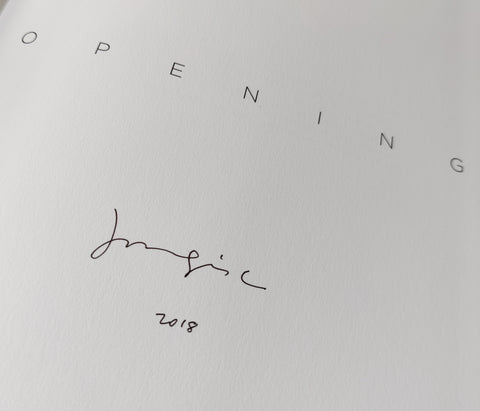 OPENING
2018